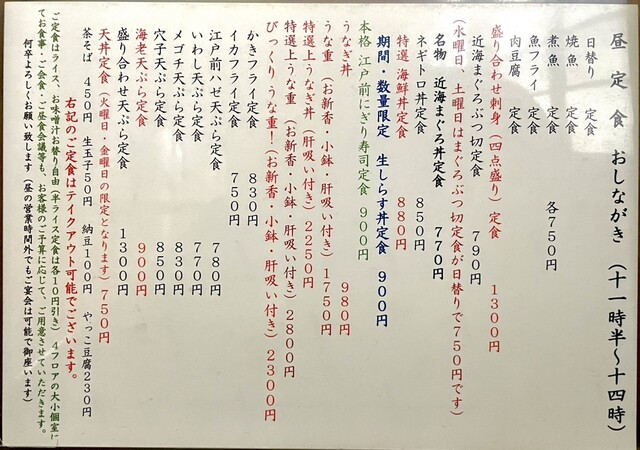 昼定食 おしながき （十一時半～十四時）
日替り 定食
焼魚 定食
煮魚 定食
魚フライ 定食
肉豆腐 定食
各７５０円
盛り合わせ刺身（四点盛り）定食 １３００円
近海まぐろぶつ切定食 ７９０円
（水曜日、土曜日はまぐろぶつ切定食が日替りで７５０円です）
名物 近海まぐろ丼定食 ７７０円
ネギトロ丼定食 ８５０円
特選 海鮮丼定食 ８８０円
期間・数量限定 生しらす丼定食 ９００円
本格 江戸前にぎり寿司定食 ９００円
うなぎ丼 ９８０円
うな重（お新香・小鉢・肝吸い付き）１７５０円
特選上うなぎ丼（肝吸い付き）２２５０円
特選上うな重（お新香・小鉢・肝吸い付き）２８００円
びっくり うな重！（お新香・小鉢・肝吸い付き）２３００円
かきフライ定食 ８３０円
イカフライ定食 ７５０円
江戸前ハゼ天ぷら定食 ７８０円
いわし天ぷら定食 ７７０円
メゴチ天ぷら定食 ８３０円
穴子天ぷら定食 ８５０円
海老天ぷら定食 ９００円
盛り合わせ天ぷら定食 １３００円
天丼定食（火曜日・金曜日の限定となります）７５０円
茶そば ４５０円 生玉子５０円 納豆１００円 やっこ豆腐２３０円
右記のご定食はテイクアウト可能でございます。
ご定食はライス、お味噌汁お替り自由（半ライス定食は各１０円引き）４フロアの大小個室にてお食事・ご会食・ご昼食会議等も、お客様のご予算に応じて、ご用意させていただきます。
何卒よろしくお願い致します（昼の営業時間外でもご宴会は可能で御座います）